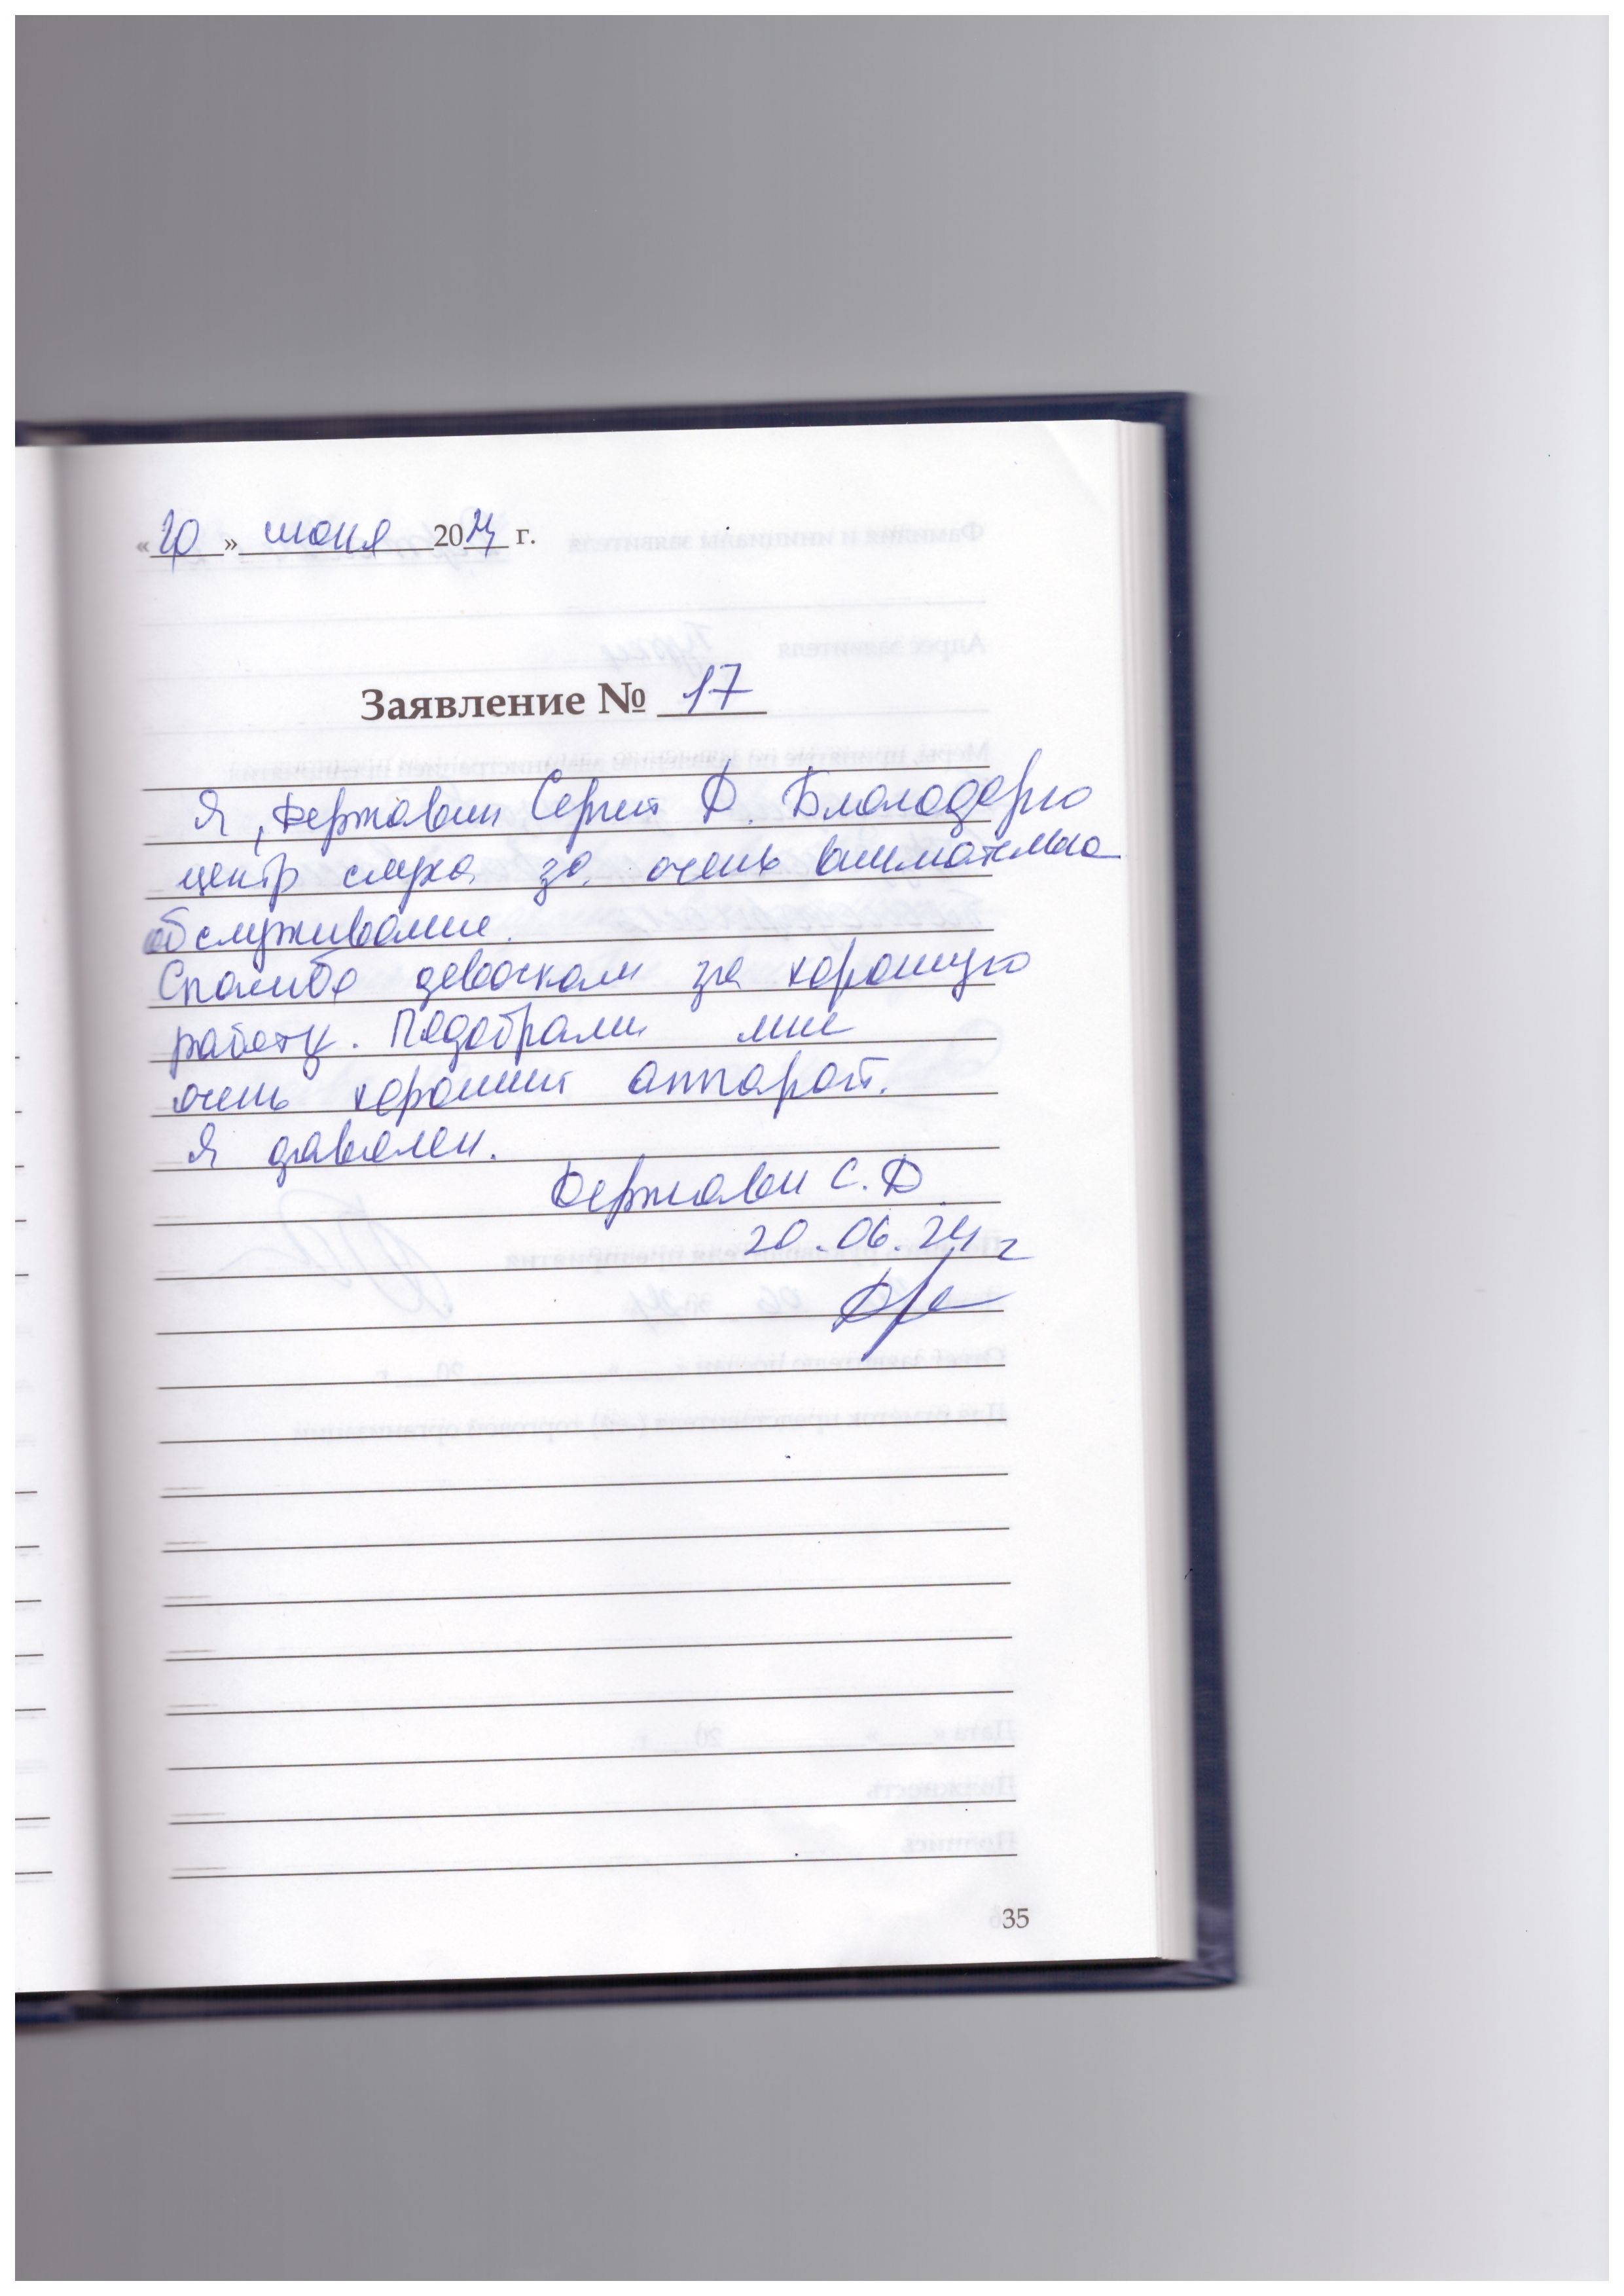 «20» июня 2024 г.
Заявление № 17
Я, Державин Сергей Д. Благодарю
центр слуха за очень внимательно
обслуживание.
Спасибо девочкам за хорошую
работу. Подобрали мне
очень хороший аппарат.
Я давелен.
Державин С. Д
20.06.24 г
35